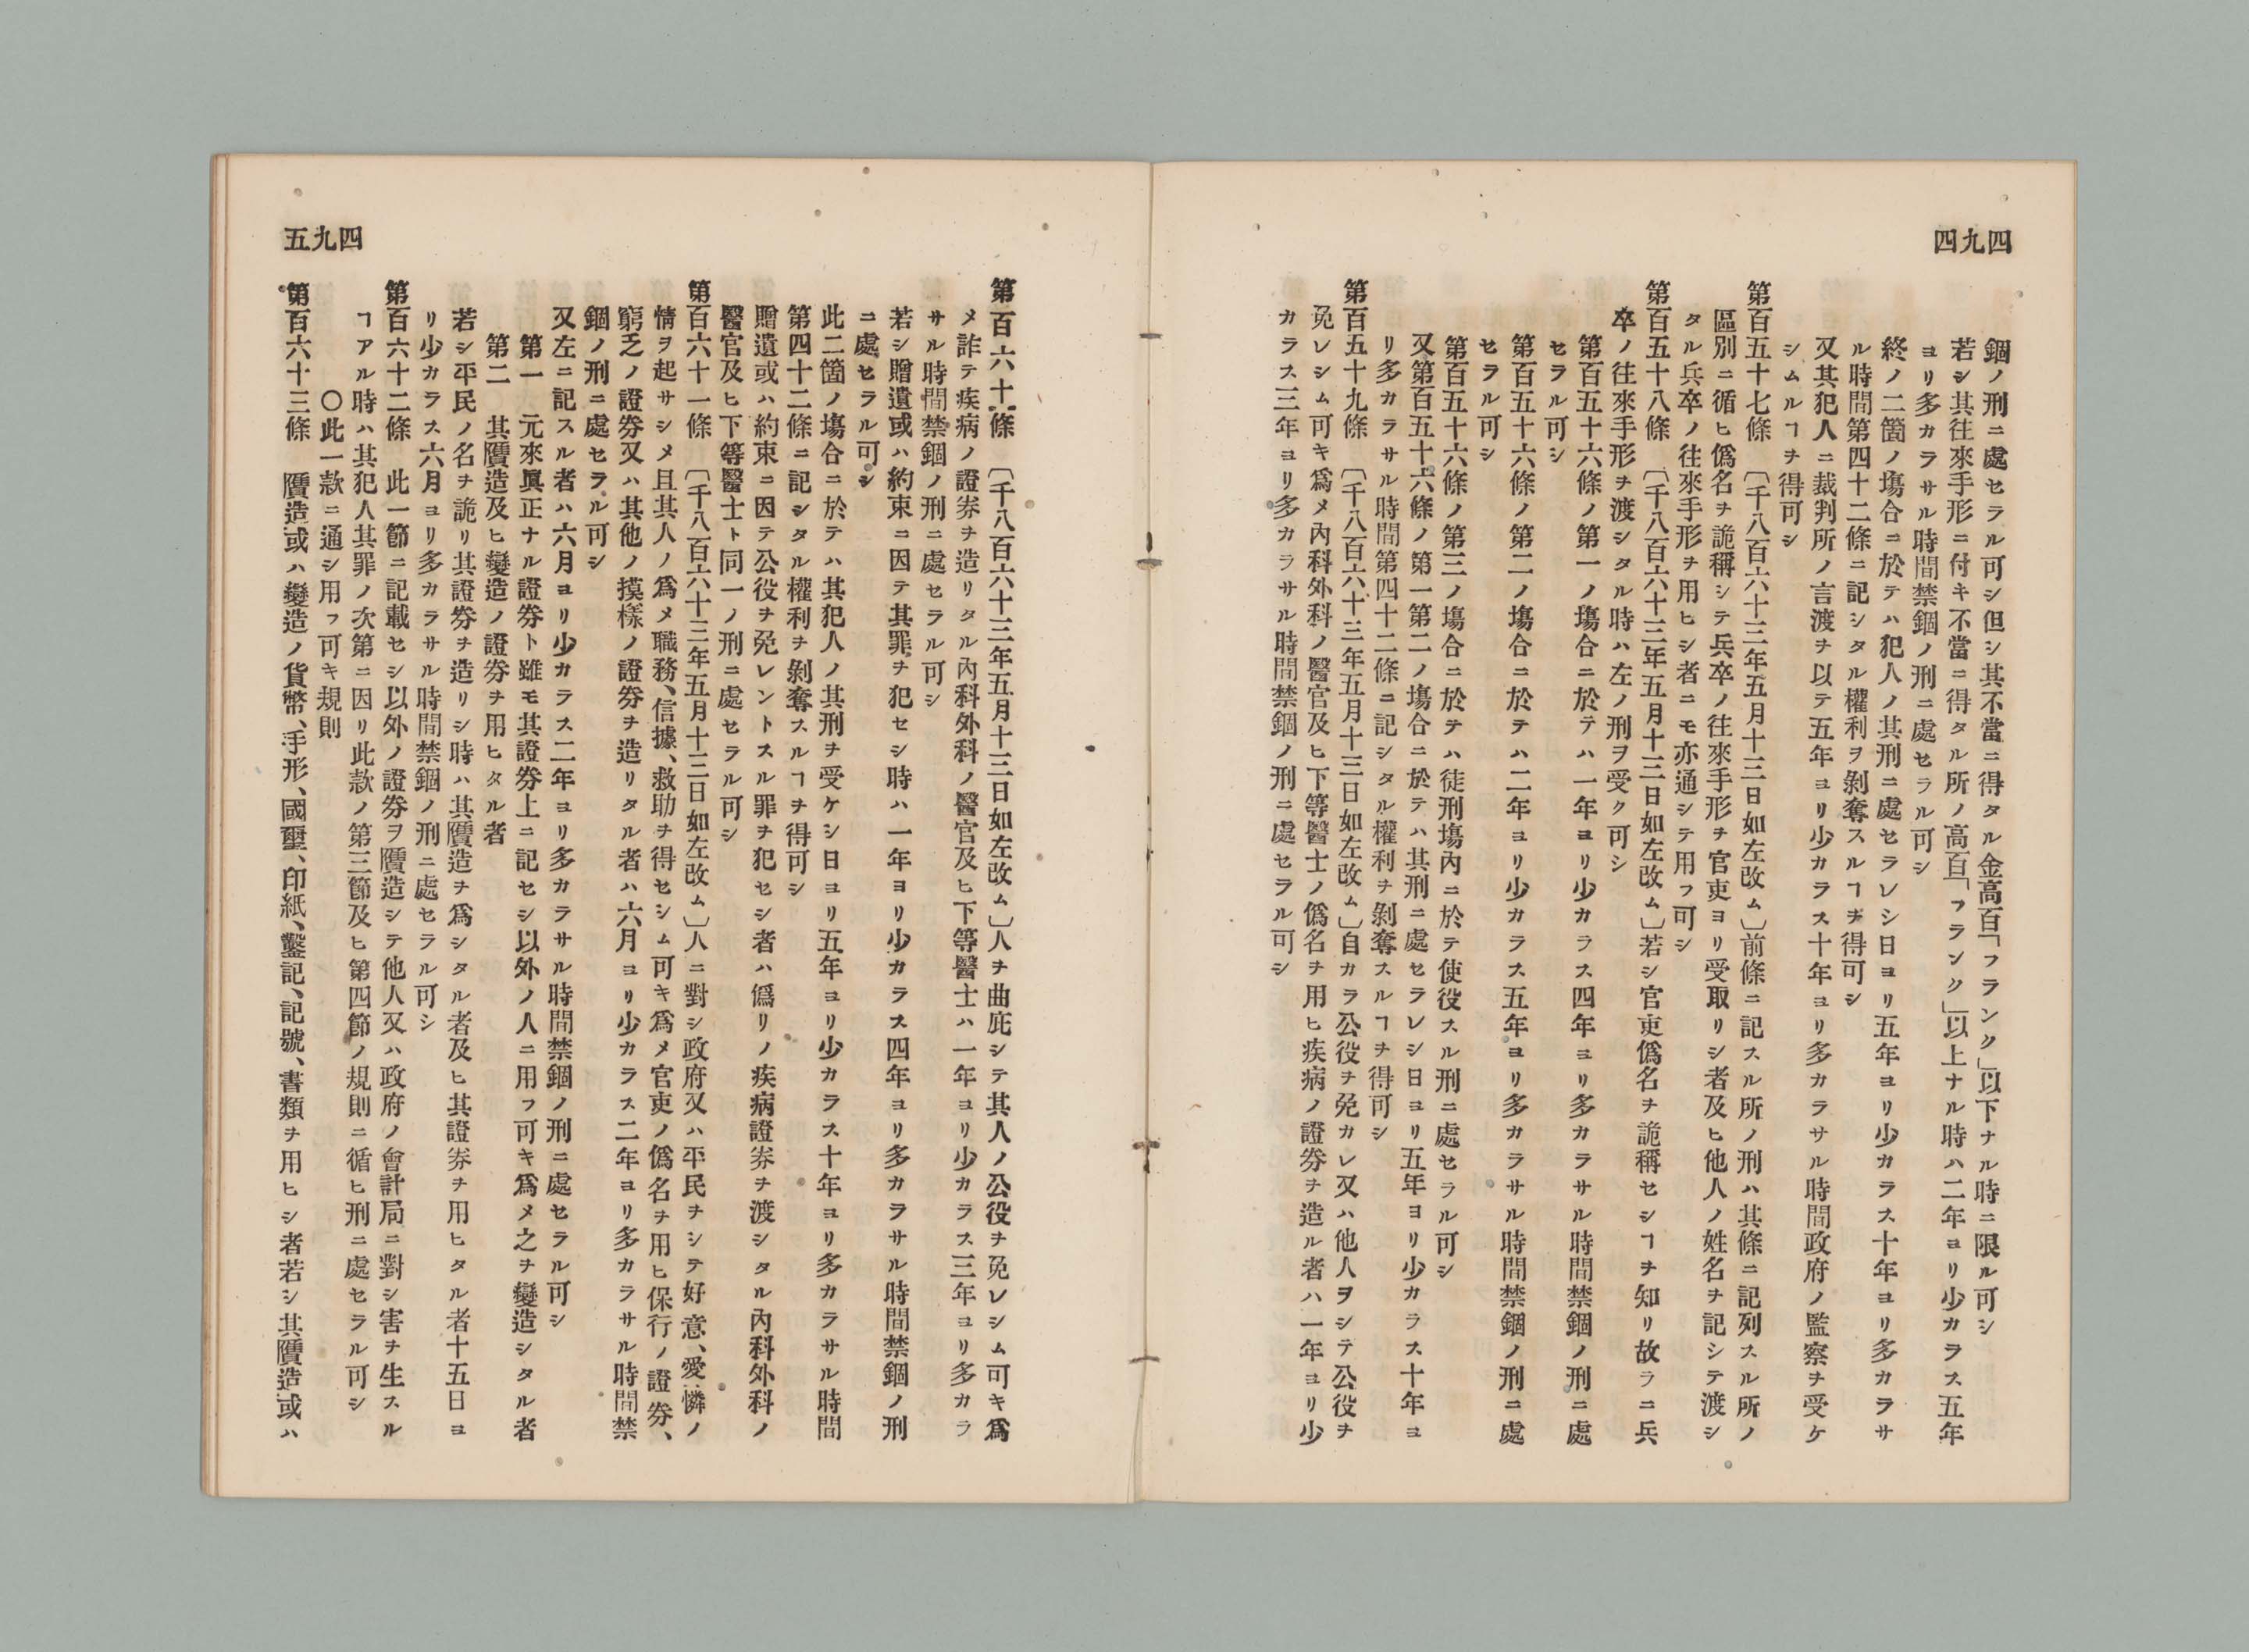 四九四
錮ノ刑ニ處セラル可シ但シ其不當ニ得タル金高百「フランク」以下ナル時ニ限ル可シ
若シ其往來手形ニ付キ不當ニ得タル所ノ高百「フランク」以上ナル時ハ二年ヨリ少カラス五年
ヨリ多カラサル時間禁錮ノ刑ニ處セラル可シ
終ノ二箇ノ塲合ニ於テハ犯人ノ其刑ニ處セラレシ日ヨリ五年ヨリ少カラス十年ヨリ多カラサ
ル時間第四十二條ニ記シタル權利ヲ剝奪スルヿヲ得可シ
又其犯人ニ裁判所ノ言渡ヲ以テ五年ヨリ少カラス十年ヨリ多カラサル時間政府ノ監察ヲ受ケ
シムルヿヲ得可シ
第百五十七條　〔千八百六十三年五月十三日如左改ム〕前條ニ記スル所ノ刑ハ其條ニ記列スル所ノ
區別ニ循ヒ僞名ヲ詭稱シテ兵卒ノ往來手形ヲ官吏ヨリ受取リシ者及ヒ他人ノ姓名ヲ記シテ渡シ
タル兵卒ノ往來手形ヲ用ヒシ者ニモ亦通シテ用フ可シ
第百五十八條　〔千八百六十三年五月十三日如左改ム〕若シ官吏僞名ヲ詭稱セシヿヲ知リ故ラニ兵
卒ノ往來手形ヲ渡シタル時ハ左ノ刑ヲ受ク可シ
第百五十六條ノ第一ノ塲合ニ於テハ一年ヨリ少カラス四年ヨリ多カラサル時間禁錮ノ刑ニ處
セラル可シ
第百五十六條ノ第二ノ塲合ニ於テハ二年ヨリ少カラス五年ヨリ多カラサル時間禁錮ノ刑ニ處
セラル可シ
第百五十六條ノ第三ノ塲合ニ於テハ徒刑塲內ニ於テ使役スル刑ニ處セラル可シ
又第百五十六條ノ第一第二ノ塲合ニ於テハ其刑ニ處セラレシ日ヨリ五年ヨリ少カラス十年ヨ
リ多カラサル時間第四十二條ニ記シタル權利ヲ剝奪スルヿヲ得可シ
第百五十九條　〔千八百六十三年五月十三日如左改ム〕自カラ公役ヲ免カレ又ハ他人ヲシテ公役ヲ
免レシム可キ爲メ內科外科ノ醫官及ヒ下等醫士ノ僞名ヲ用ヒ疾病ノ證劵ヲ造ル者ハ一年ヨリ少
カラス三年ヨリ多カラサル時間禁錮ノ刑ニ處セラル可シ
四九五
第百六十條　〔千八百六十三年五月十三日如左改ム〕人ヲ曲庇シテ其人ノ公役ヲ免レシム可キ爲
メ詐テ疾病ノ證劵ヲ造リタル內科外科ノ醫官及ヒ下等醫士ハ一年ヨリ少カラス三年ヨリ多カラ
サル時間禁錮ノ刑ニ處セラル可シ
若シ贈遺或ハ約束ニ因テ其罪ヲ犯セシ時ハ一年ヨリ少カラス四年ヨリ多カラサル時間禁錮ノ刑
ニ處セラル可シ
此二箇ノ塲合ニ於テハ其犯人ノ其刑ヲ受ケシ日ヨリ五年ヨリ少カラス十年ヨリ多カラサル時間
第四十二條ニ記シタル權利ヲ剝奪スルヿヲ得可シ
贈遺或ハ約束ニ因テ公役ヲ免レントスル罪ヲ犯セシ者ハ僞リノ疾病證劵ヲ渡シタル內科外科ノ
醫官及ヒ下等醫士ト同一ノ刑ニ處セラル可シ
第百六十一條　〔千八百六十三年五月十三日如左改ム〕人ニ對シ政府又ハ平民ヲシテ好意、愛憐ノ
情ヲ起サシメ且其人ノ爲メ職務、信據、救助ヲ得セシム可キ爲メ官吏ノ僞名ヲ用ヒ保行ノ證劵、
窮乏ノ證劵又ハ其他ノ摸樣ノ證劵ヲ造リタル者ハ六月ヨリ少カラス二年ヨリ多カラサル時間禁
錮ノ刑ニ處セラル可シ
又左ニ記スル者ハ六月ヨリ少カラス二年ヨリ多カラサル時間禁錮ノ刑ニ處セラル可シ
第一　元來眞正ナル證劵ト雖モ其證劵上ニ記セシ以外ノ人ニ用フ可キ爲メ之ヲ變造シタル者
第二　其贋造及ヒ變造ノ證劵ヲ用ヒタル者
若シ平民ノ名ヲ詭リ其證劵ヲ造リシ時ハ其贋造ヲ爲シタル者及ヒ其證劵ヲ用ヒタル者十五日ヨ
リ少カラス六月ヨリ多カラサル時間禁錮ノ刑ニ處セラル可シ
第百六十二條　此一節ニ記載セシ以外ノ證劵ヲ贋造シテ他人又ハ政府ノ會計局ニ對シ害ヲ生スル
ヿアル時ハ其犯人其罪ノ次第ニ因リ此款ノ第三節及ヒ第四節ノ規則ニ循ヒ刑ニ處セラル可シ
〇此一款ニ通シ用フ可キ規則
第百六十三條　贋造或ハ變造ノ貨幣、手形、國璽、印紙、鑿記、記號、書類ヲ用ヒシ者若シ其贋造或ハ